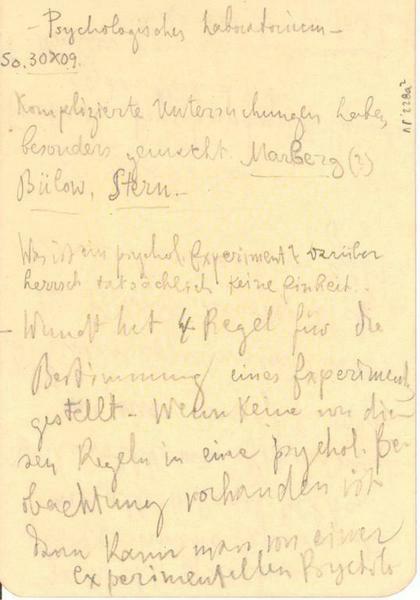 - Psychologisches Laboratorium -
So. 30X09.
Komplizierte Untersuchungen haben
besonders gemacht. Marberg (?)
Bülow, Stern. -
Was ist ein psychol. Experiment? darüber
herrsch tatsächlich keine Einheit. -
- Wundt hat 4 Regel für die
Bestimmung eines Experiments
gestellt. - Wenn keine von die-
sen Regeln in eine psychol. Be-
obachtung vorhanden ist
dann kann man von einer
experimentellen Psycholo